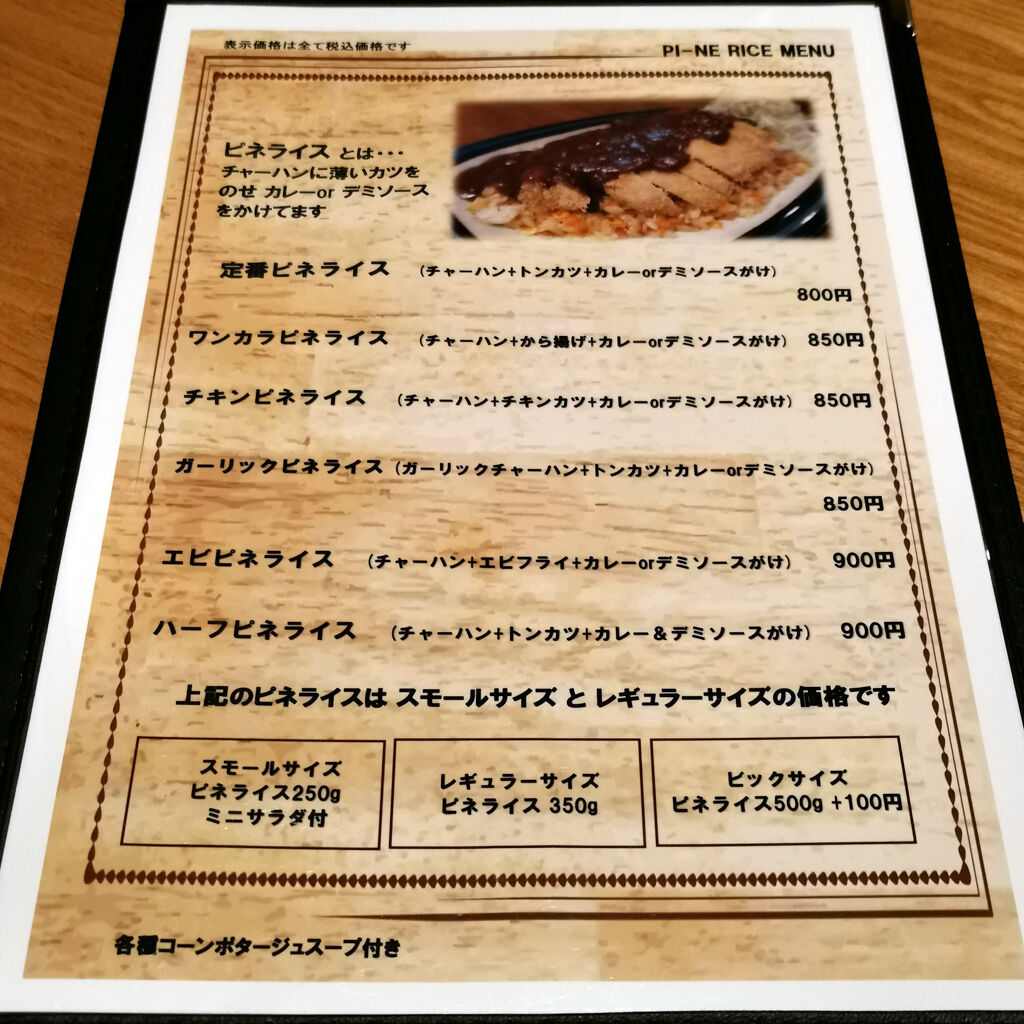 表示価格は全て税込価格です
PI-NE RICE MENU
ピネライス とは・・・
チャーハンに薄いカツを
のせ カレーor デミソース
をかけてます
定番ピネライス (チャーハン+トンカツ+カレーorデミソースがけ)
800円
ワンカラピネライス (チャーハン+から揚げ+カレーorデミソースがけ) 850円
チキンピネライス (チャーハン+チキンカツ+カレーorデミソースがけ) 850円
ガーリックピネライス (ガーリックチャーハン+トンカツ+カレーorデミソースがけ)
850円
エビピネライス (チャーハン+エビフライ+カレーorデミソースがけ) 900円
ハーフピネライス (チャーハン+トンカツ+カレー&デミソースがけ) 900円
上記のピネライスは スモールサイズ と レギュラーサイズの価格です
スモールサイズ
ピネライス250g
ミニサラダ付
レギュラーサイズ
ピネライス 350g
ビックサイズ
ピネライス500g +100円
各種コーンポタージュスープ付き